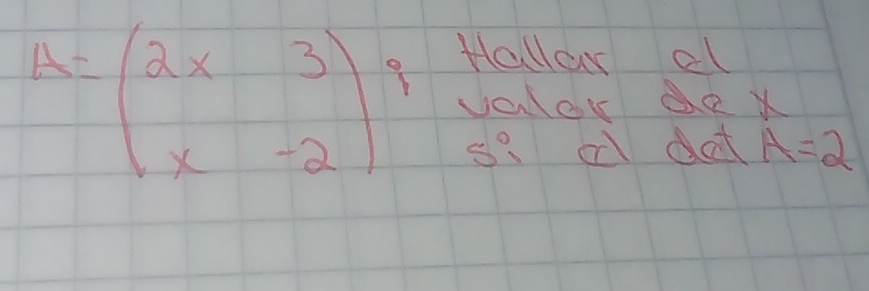 A = (2x 3) ; Hallar el
valor de x
(x -2) si el det A = 2